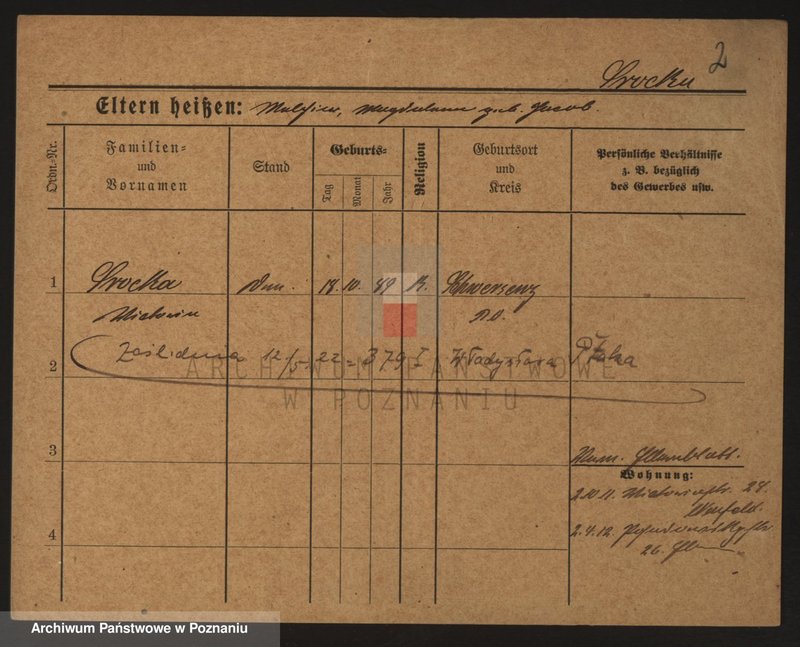 2
Srocka
Eltern heißen: Melchior, Magdalena geb. Jacob.
Ordn.-Nr.
Familien- und Vornamen
Stand
Geburts-
Tag
Monat
Jahr
Religion
Geburtsort und Kreis
Persönliche Verhältnisse z. B. bezüglich des Gewerbes usw.
1 Srocka 18. 10. 89 K. Schwersenz
Victoria P.O.
2 Zaślubiona 12/5 22 Władysława
3
Wohnung:
2.10.11. Victoriastr. 27.
2.4.12.
4 26.
ARCHIWUM PAŃSTWOWE
W POZNANIU
Archiwum Państwowe w Poznaniu